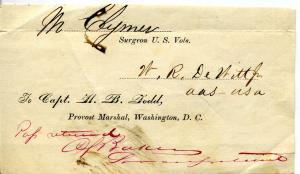 M Clymer
Surgeon U. S. Vols.
W. R. De Witt Jr
aas-usa
To Capt. H. B. Todd,
Provost Marshal, Washington, D. C.
Pass returned
Baker